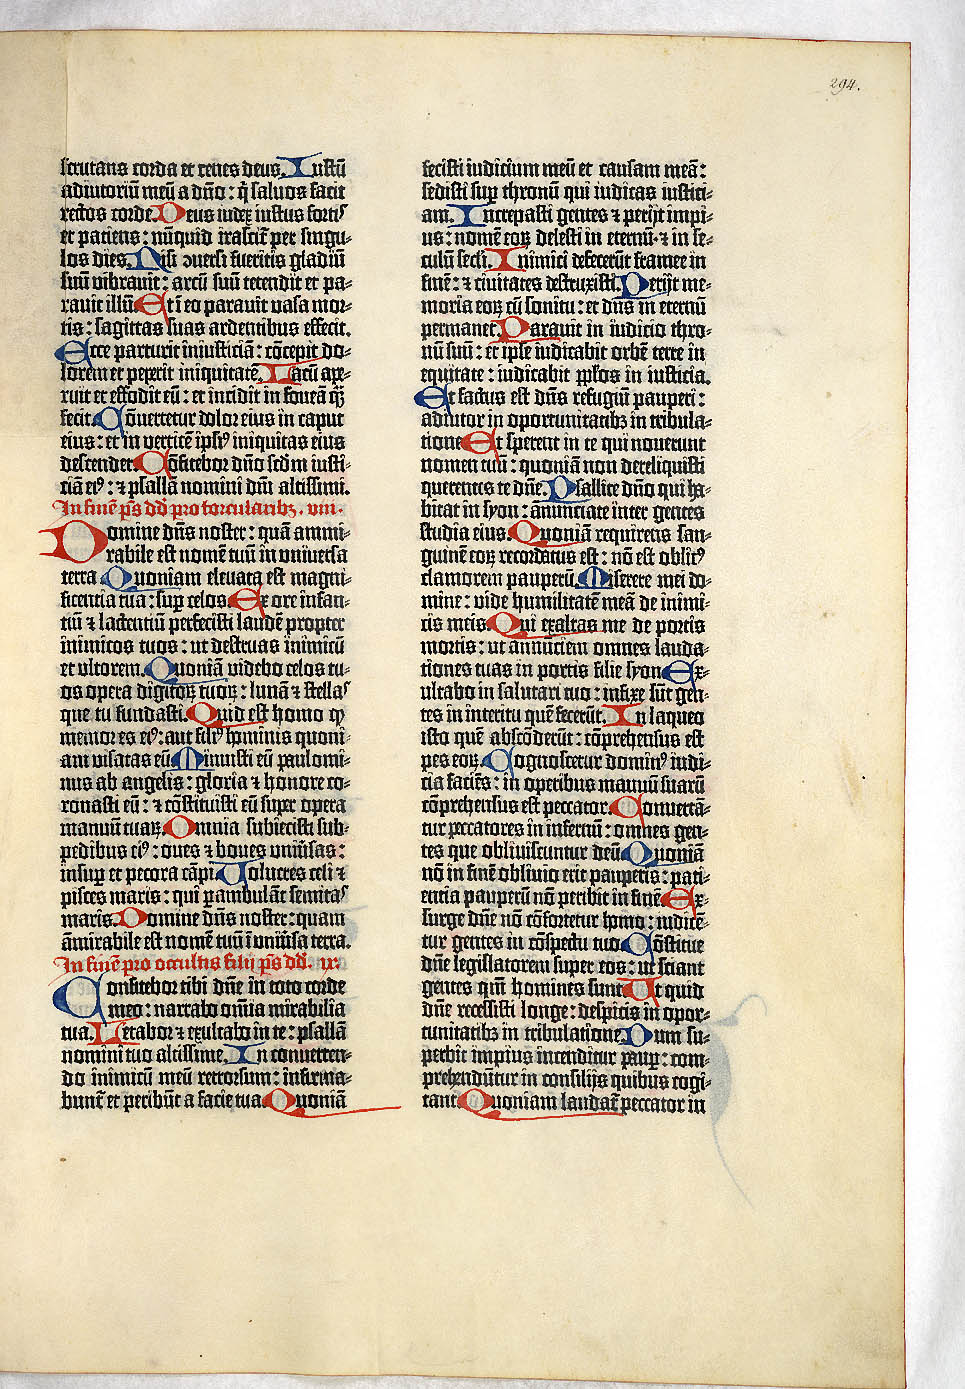 294.
scrutans corda et renes deus. Iustū
adiutoriū meū a dño: qͥ saluos facit
rectos corde. Deus iudex iustus fortꝰ
et paciens: nūquid irascit̄ per singu-
los dies. Nisi ↄuersi fueritis gladiū
suū vibrauit: arcū suū tetendit et pa-
rauit illū. Et ī eo parauit vasa mor-
tis: sagittas suas ardentibus effecit.
Ecce parturit iniusticiā: cōcepit do-
lorem et peperit iniquitatē. Lacū ape-
ruit et effodit eū: et incidit in foueā quā
fecit. Cōuertetur dolor eius in caput
eius: et in verticē ipsꝰ iniquitas eius
descendet. Cōfitebor dño scdm̄ iusti-
ciā eiꝰ: ⁊ psallā nomini dñi altissimi.
In finē pˢ dd̄ pro torcularibꝫ. viii.
Domine dñs noster: quā ammi-
rabile est nomē tuū in vniuersa
terra. Quoniam eleuata est magni-
ficentia tua: suꝑ celos. Ex ore infan-
tiū ⁊ lactentiū perfecisti laudē propter
inimicos tuos: ut destruas inimicū
et vltorem. Quoniā videbo celos tu-
os opera digitoꝝ tuoꝝ: lunā ⁊ stellas
que tu fundasti. Quid est homo ꝙ
memor es eiꝰ: aut filiꝰ hominis quoni-
am visitas eū. Minuisti eū paulomi-
nus ab angelis: gloria ⁊ honore co-
ronasti eū: ⁊ cōstituisti eū super opera
manuū tuaꝝ. Omnia subiecisti sub-
pedibus eiꝰ: oues ⁊ boues vniūsas:
insuꝑ et pecora cāpi. Volucres celi ⁊
pisces maris: qui ꝑambulāt semitas
maris. Domine dñs noster: quam
āmirabile est nomē tuū ī vniūsa terra.
In finē pro occultis filij pˢ dd̄. ix.
Confitebor tibi dñe in toto corde
meo: narrabo om̄ia mirabilia
tua. Letabor ⁊ exultabo in te: psallā
nomini tuo altissime. In conuerten-
do inimicū meū retrorsum: infirma-
bunt̄ et peribūt a facie tua. Quoniā
fecisti iudicium meū et causam meā:
sedisti suꝑ thronū qui iudicas iustici-
am. Increpasti gentes ⁊ perijt impi-
us: nomē eoꝝ delesti in eternū· ⁊ in se-
culū secli. Inimici defecerūt framee in
finē: ⁊ ciuitates destruxisti. Perijt me-
moria eoꝝ cū sonitu: et dñs in eternū
permanet. Parauit in iudicio thro-
nū suū: et ipse iudicabit orbē terre in
equitate: iudicabit pp̄los in iusticia.
Et factus est dñs refugiū pauperi:
adiutor in oportunitatibꝫ in tribula-
tione. Et sperent in te qui nouerunt
nomen tuū: quoniā non dereliquisti
querentes te dñe. Psallite dño qui ha-
bitat in syon: annunciate inter gentes
studia eius. Quoniā requirens san-
guinē eoꝝ recordatus est: nō est oblitꝰ
clamorem pauperū. Miserere mei do-
mine: vide humilitatē meā de inimi-
cis meis. Qui exaltas me de portis
mortis: ut annūciem omnes lauda-
tiones tuas in portis filie syon. Ex-
ultabo in salutari tuo: infixe sūt gen-
tes in interitu quē fecerūt. In laqueo
isto quē abscōderūt: cōprehensus est
pes eoꝝ. Cognoscetur dominꝰ iudi-
cia faciēs: in operibus manuū suarū
cōprehensus est peccator. Conuertā-
tur peccatores in infernū: omnes gen-
tes que obliuiscuntur deū. Quoniā
nō in finē obliuio erit pauperis: pati-
entia pauperū nō peribit in finē. Ex-
surge dñe nō cōfortetur homo: iudicē-
tur gentes in cōspectu tuo. Cōstitue
dñe legislatorem super eos: ut sciant
gentes qm̄ homines sunt. Ut quid
dñe recessisti longe: despicis in opor-
tunitatibꝫ in tribulatione. Dum su-
perbit impius incenditur pauꝑ: com-
prehendūtur in consilijs quibus cogi-
tant. Quoniam laudat̄ peccator in